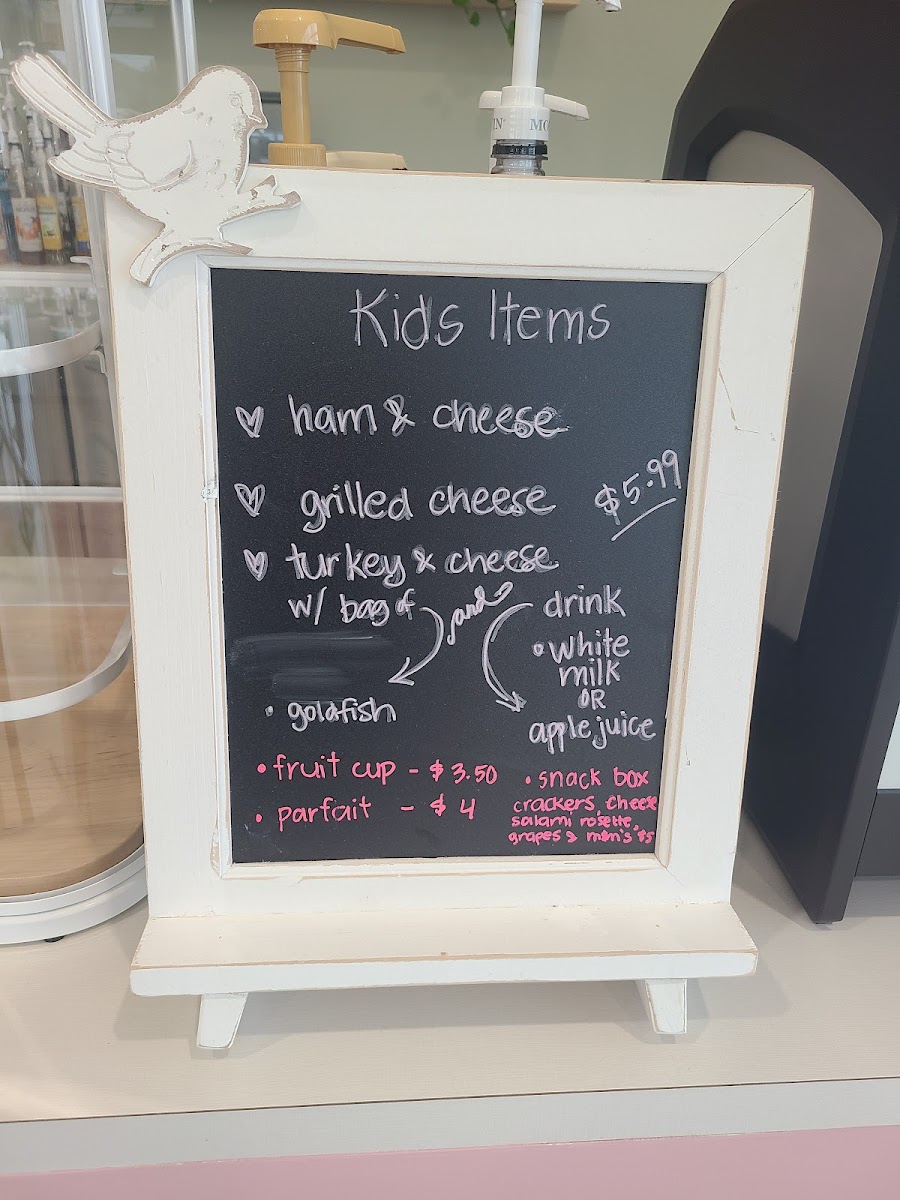 Kids Items
ham & cheese
grilled cheese
$5.99
turkey & cheese
w/ bag of
and
drink
• white
milk
OR
apple juice
• goldfish
• fruit cup - $3.50
• parfait - $4
• snack box
crackers, cheese
salami rosette,
grapes &